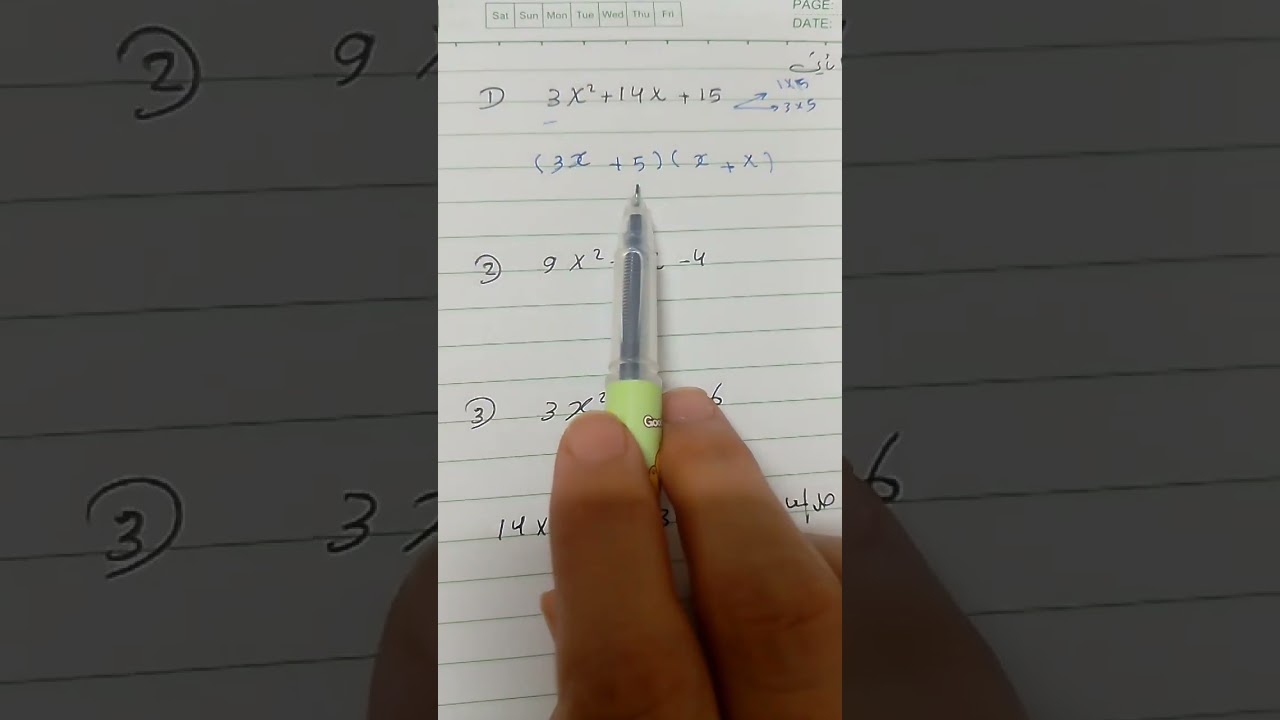 Sat Sun Mon Tue Wed Thu Fri
PAGE:
DATE:
① 3x²+14x+15
1×5
3×5
(3x+5)(x+x)
② 9x² -4
③ 3x² 6
14x 3